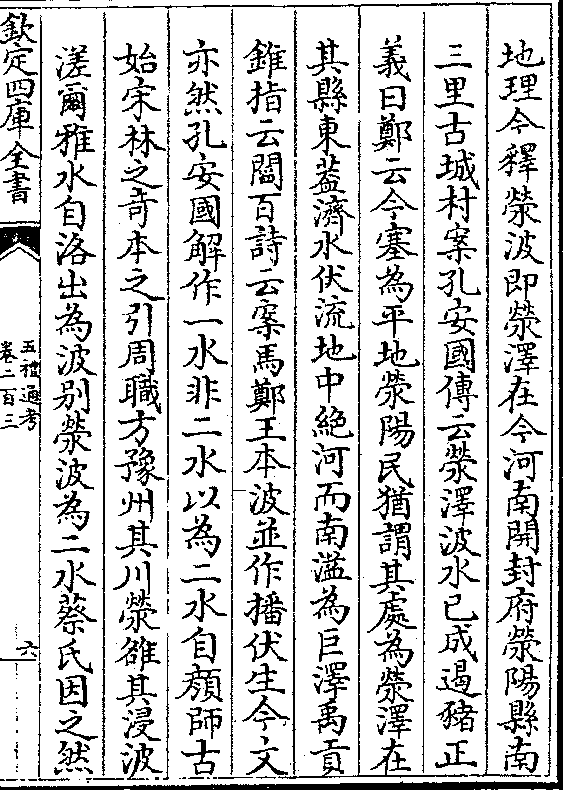 地理今釋滎波即滎澤在今河南開封府滎陽縣南
三里古城村案孔安國傳云滎澤波水已成遏豬正
義曰鄭云今塞為平地滎陽民猶謂其處為滎澤在
其縣東葢濟水伏流地中絶河而南溢為巨澤禹貢
錐指云閻百詩云案馬鄭王本波並作播伏生今文
亦然孔安國解作一水非二水以為二水自顔師古
始宋林之竒本之引周職方豫州其川滎雒其浸波
溠爾雅水自洛出為波别滎波為二水蔡氏因之然
欽定四庫全書
五禮通考
卷二百三
六